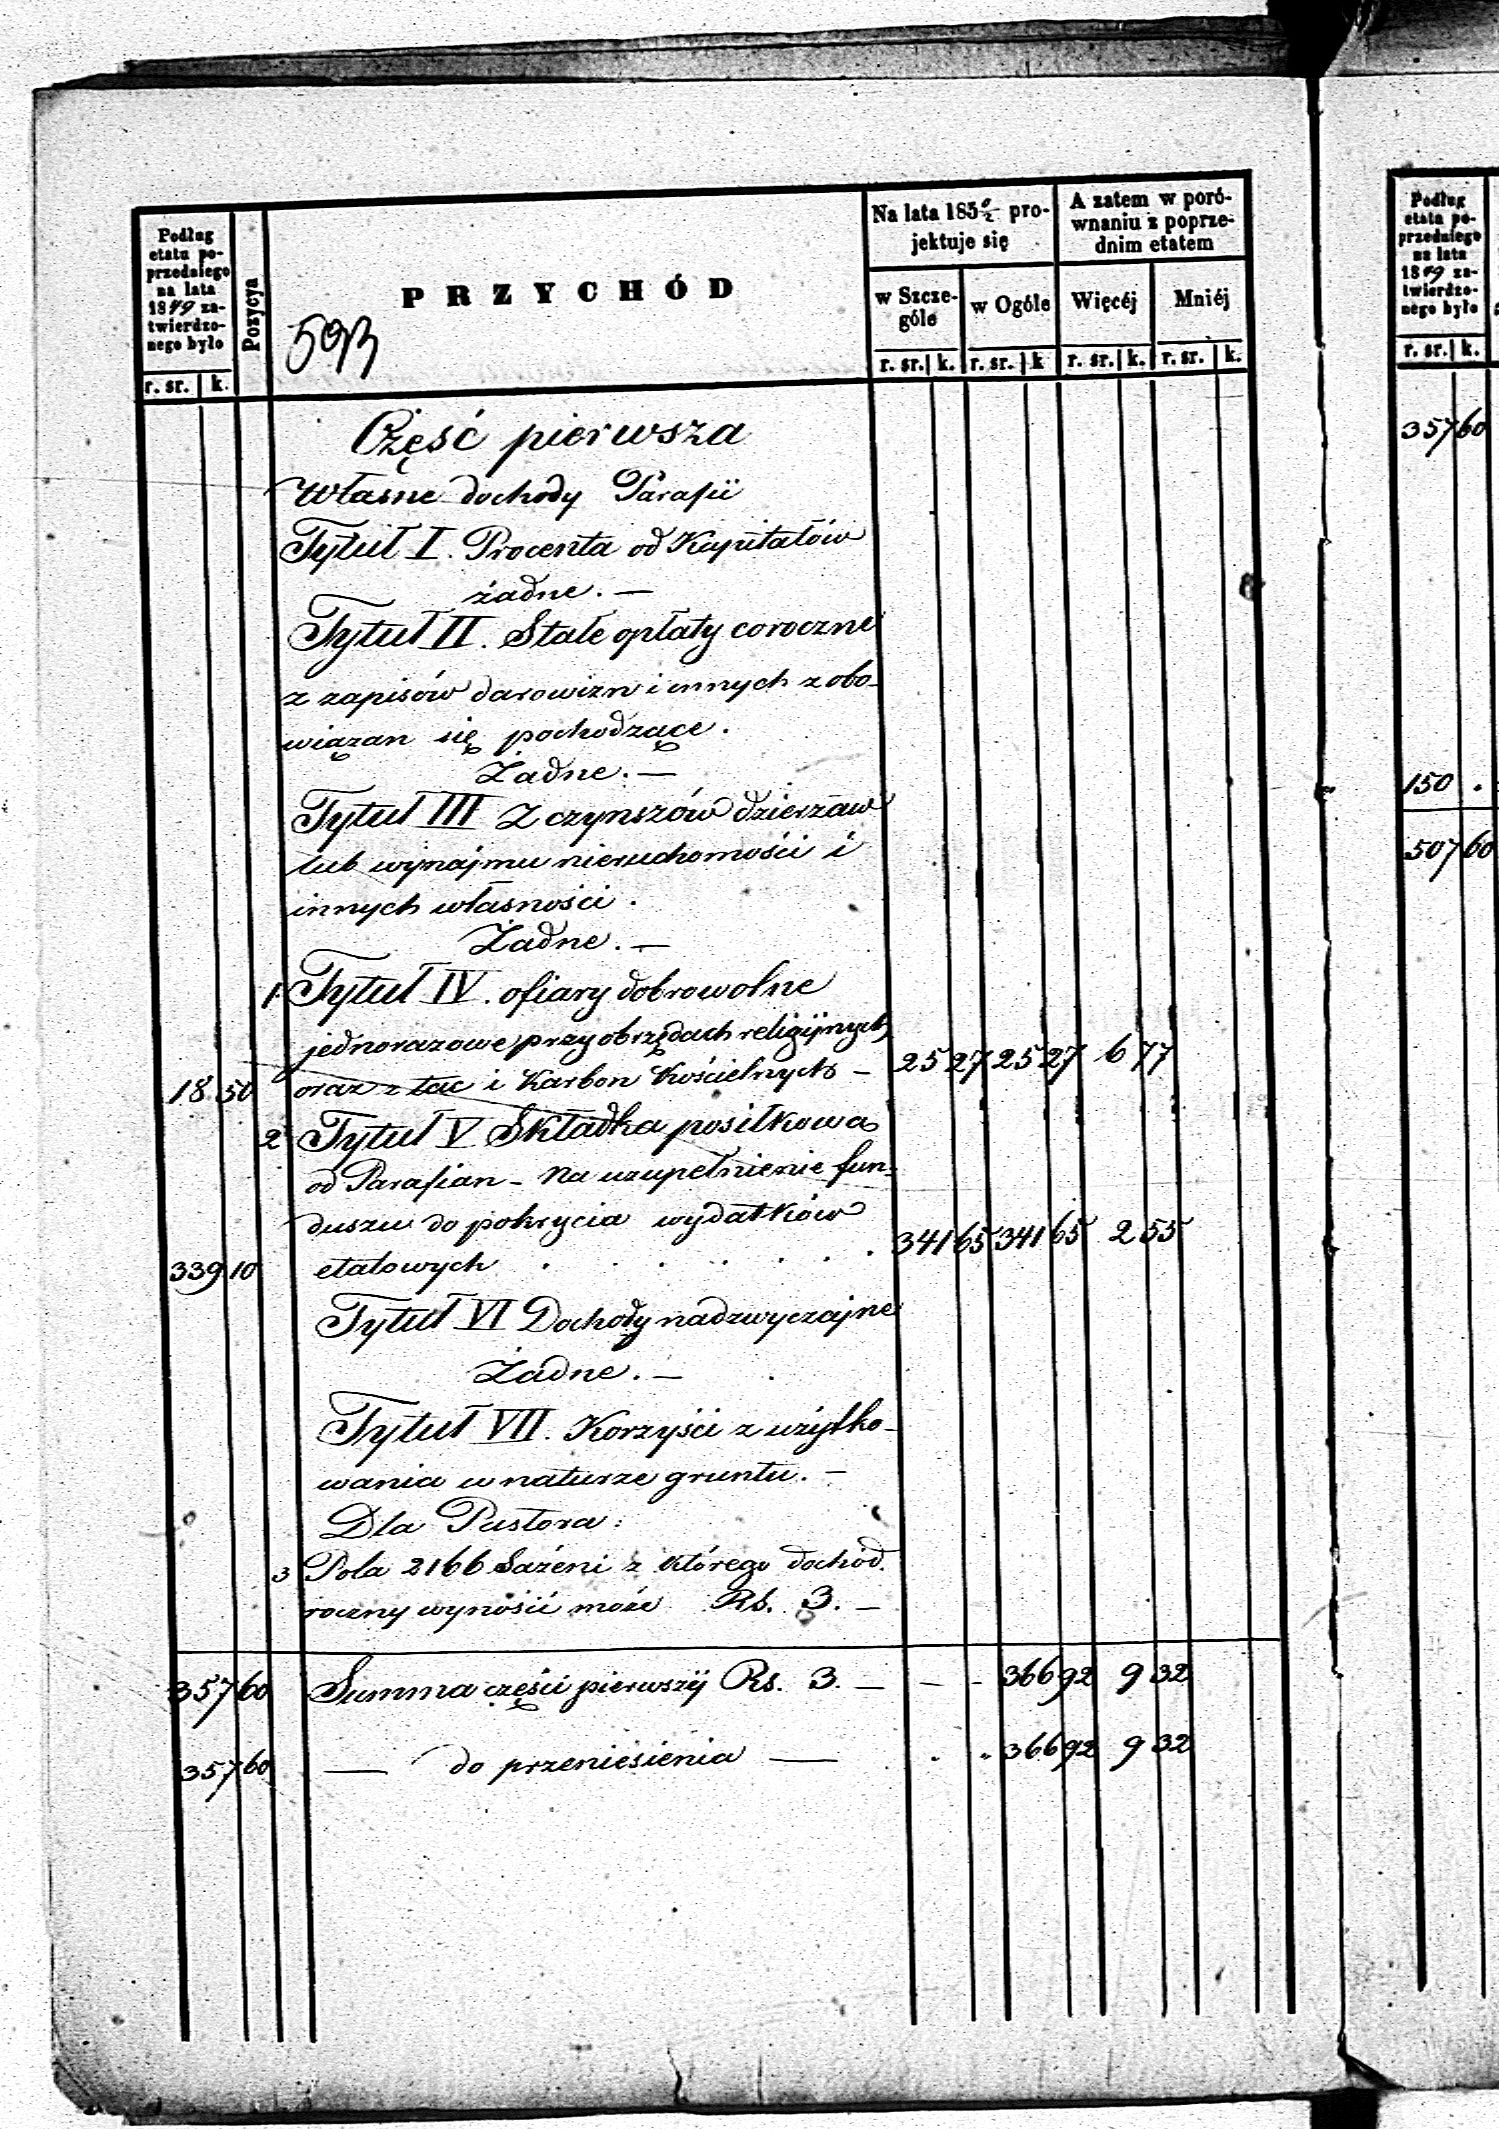 Podług etatu poprzedniego na lata 1849 zatwierdzonego było
Pozycya
PRZYCHÓD
Na lata 185 0/2 projektuje się
A zatem w porównaniu z poprzednim etatem
w Szczególe
w Ogóle
Więcéj
Mniéj
r. sr. k.
r. sr. k.
r. sr. k
r. sr. k.
r. sr. k.
Część pierwsza
Własne dochody Parafii
Tytuł I. Procenta od Kapitałów
żadne. —
Tytuł II. Stałe opłaty coroczne
z zapisów darowizn i innych zobo-
wiązan się pochodzące.
Żadne. —
Tytuł III Z czynszów dzierżaw
lub wynajmu nieruchomości i
innych własności.
Żadne. —
1 Tytuł IV. ofiary dobrowolne
jednorazowe przy obrzędach religijnych
18 50 oraz z tac i Karbon Kościelnych — 25 27 25 27 6 77
2 Tytuł V Składka posiłkowa
od Parafian — Na uzupełnienie fun-
duszu do pokrycia wydatków
339 10 etatowych . . . . . . 341 65 341 65 2 55
Tytuł VI Dochody nadzwyczajne
Żadne. —
Tytuł VII. Korzyści z użytko-
wania w naturze gruntu. —
Dla Pastora:
3 Pola 2166 Sażeni z którego dochód
roczny wynosić może Rs. 3. —
357 60 Summa części pierwszéj Rs. 3. — — - 366 92 9 32
357 60 — do przeniesienia — . . 366 92 9 32
Podług etatu poprzedniego na lata 1849 zatwierdzonego było
r. sr. k.
357 60
150 .
507 60